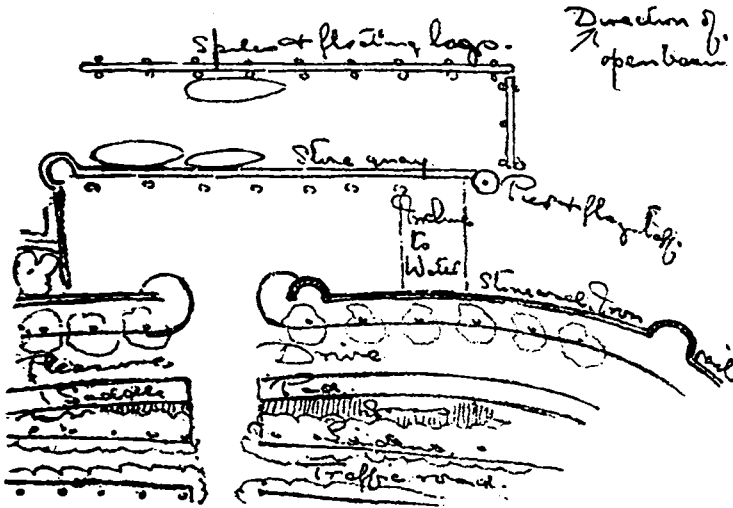 Direction of
open basin
Spiles & floating logs.
Stone quay
Pier & flagstaff.
Incline
to
Water
Stone and Iron
rail
Pleasure Drive
Saddle Pad.
Gardens
Traffic road.